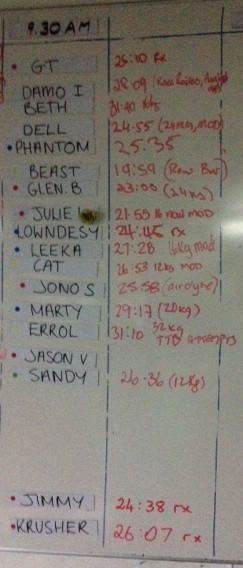 9.30 AM
GT 25:10 Rx
DAMO I 28 09 (
BETH 31:40
DELL 24:55 (24KG, MOD)
PHANTOM 25.35
BEAST 19:59 (Row Bar)
GLEN.B 23:00 (24kg)
JULIE 21:55 16 row MOD
LOWNDESY 24:45 rx
LEEKA 27:28 16kg mod
CAT 26:53 12kg MOD
JONO S 25:58 (airdyne)
MARTY 29:17 (20kg)
ERROL 31:10 32kg
TTB
JASON V
SANDY 26:36 (12kg)
JIMMY 24:38 rx
KRUSHER 26:07 rx